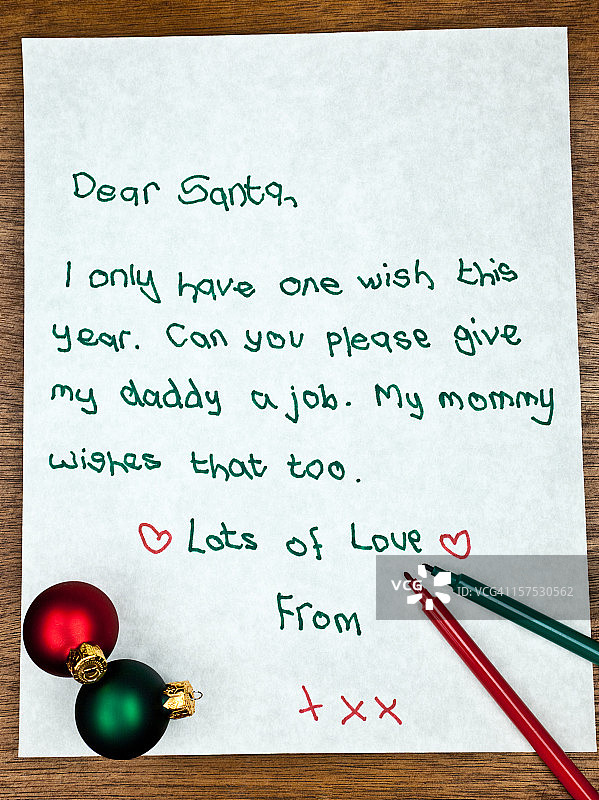 Dear Santa,
I only have one wish this
year. Can you please give
my daddy a job. My mommy
wishes that too.
♡ Lots of Love ♡
From
+xx
VCG
VCG41157530562